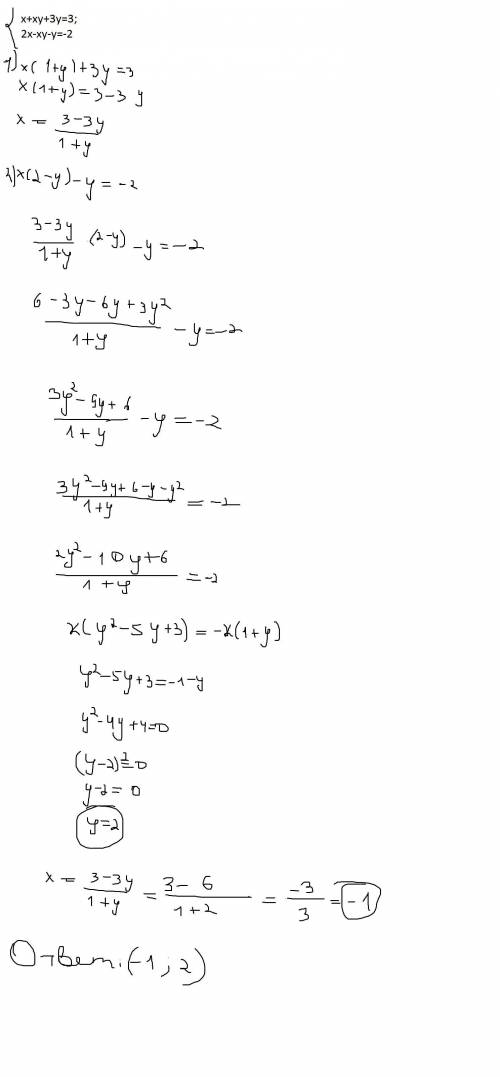 x+xy+3y=3;
2x-xy-y=-2
1) x(1+y)+3y=3
x(1+y)=3-3y
x = (3-3y)/(1+y)
2) x(2-y)-y=-2
(3-3y)/(1+y) (2-y) -y=-2
(6-3y-6y+3y²)/(1+y) -y=-2
(3y²-9y+6)/(1+y) -y=-2
(3y²-9y+6-y-y²)/(1+y) =-2
(2y²-10y+6)/(1+y) =-2
2(y²-5y+3)=-2(1+y)
y²-5y+3=-1-y
y²-4y+4=0
(y-2)²=0
y-2=0
y=2
x = (3-3y)/(1+y) = (3-6)/(1+2) = -3/3 = -1
Ответ: (-1; 2)